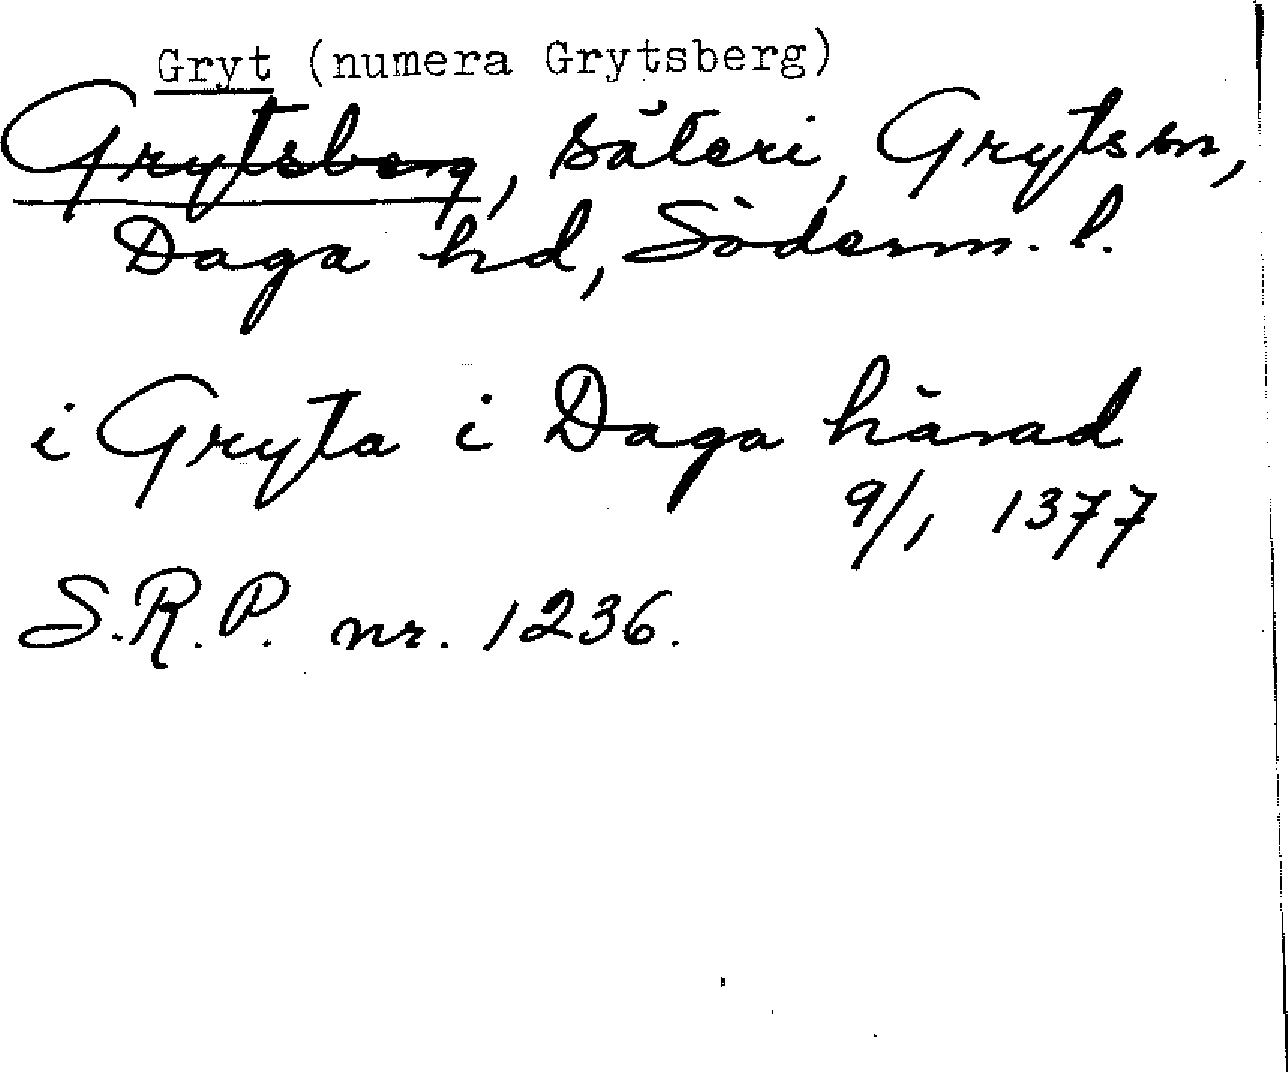 Gryt (numera Grytsberg)
Grytsberg, säteri, Gryts sn,
Daga hd, Söderm. l.
i Gryta i Daga härad
9/1 1377
S.R.P. nr. 1236.